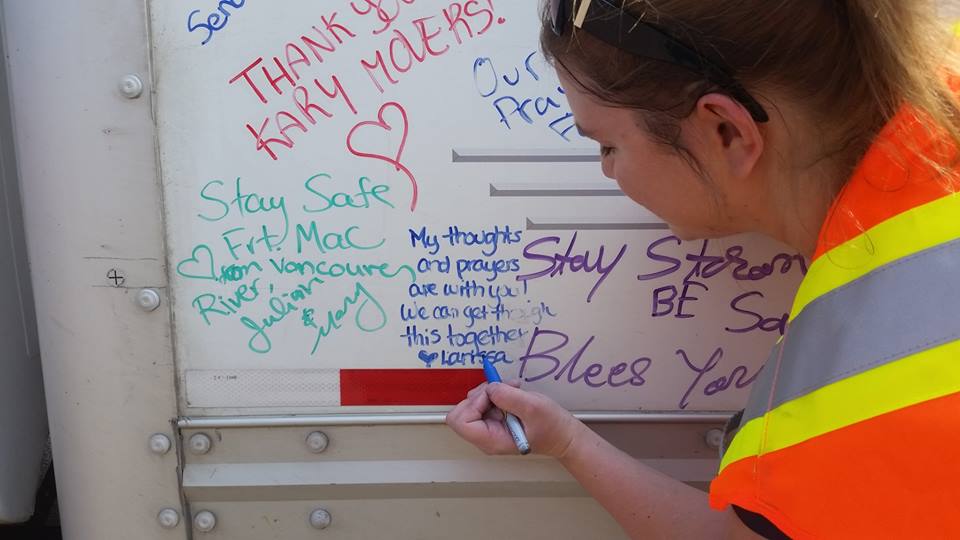 THANK YOU
KARY MOVERS!
Our
Stay Safe
Frt. Mac
River,
Julian
& Mary
My thoughts
and prayers
are with you!
We can get though
this together
Larissa
Stay
BE
Blees You